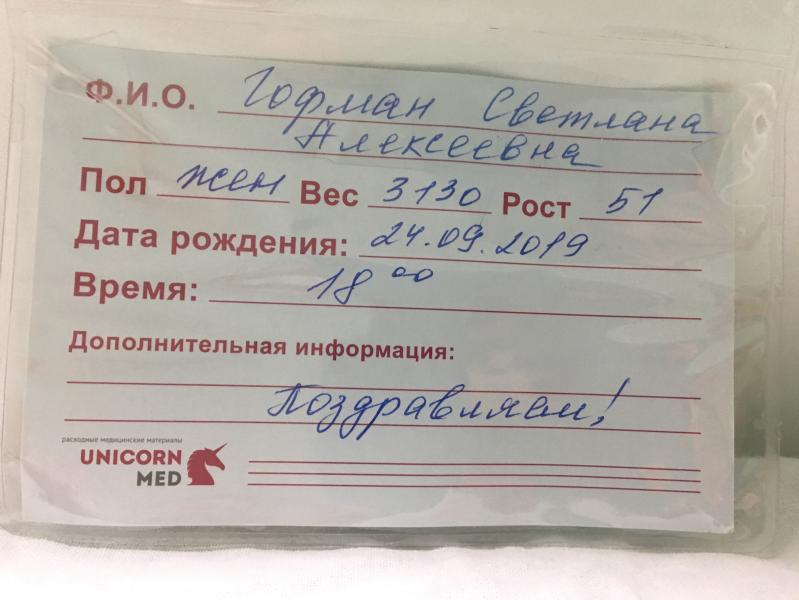 Ф.И.О. Гофман Светлана
Алексеевна
Пол жен Вес 3130 Рост 51
Дата рождения: 24.09.2019
Время: 18 00
Дополнительная информация:
Поздравляем!
расходные медицинские материалы
UNICORN
MED